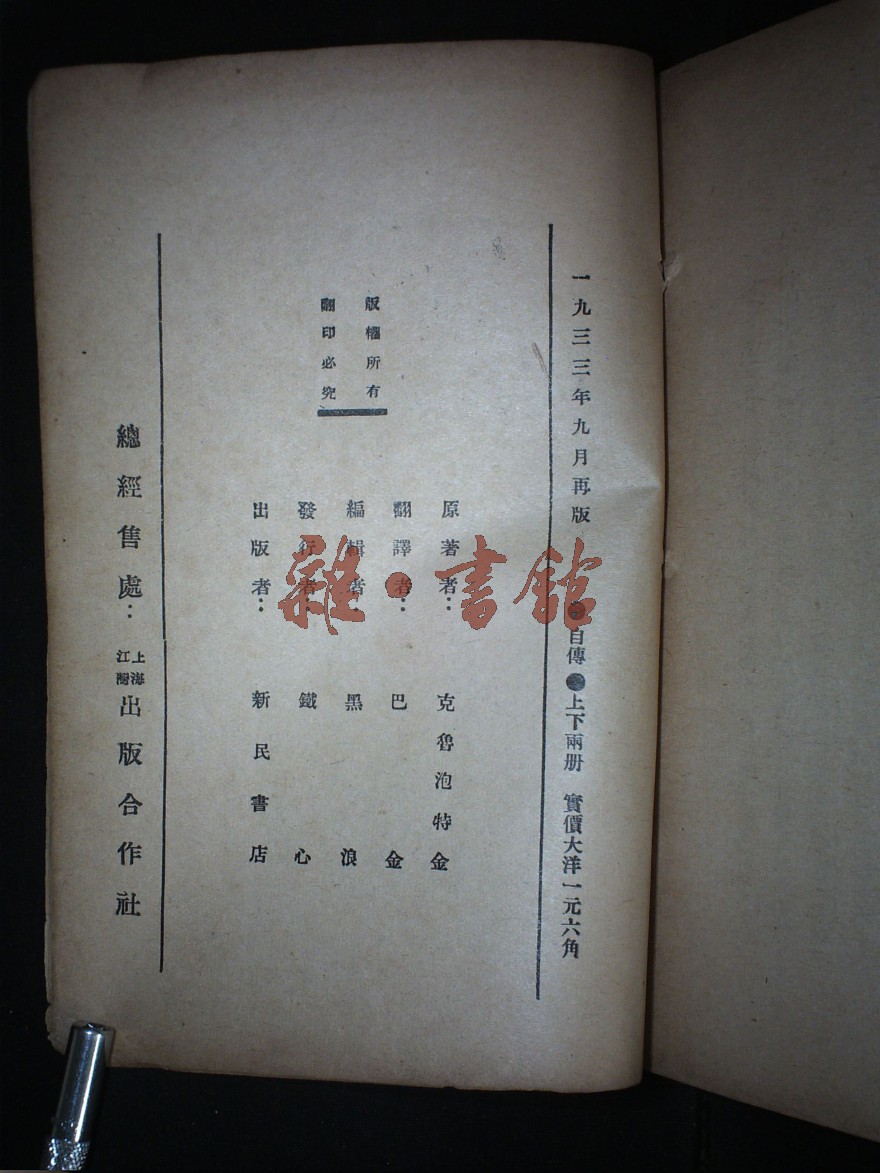 一九三三年九月再版 自傳 上下兩册 實價大洋一元六角
原著者：克魯泡特金
翻譯者：巴金
編輯者：黑浪
發行者：鐵心
出版者：新民書店
版權所有
翻印必究
總經售處：上海江灣出版合作社
雜·書館